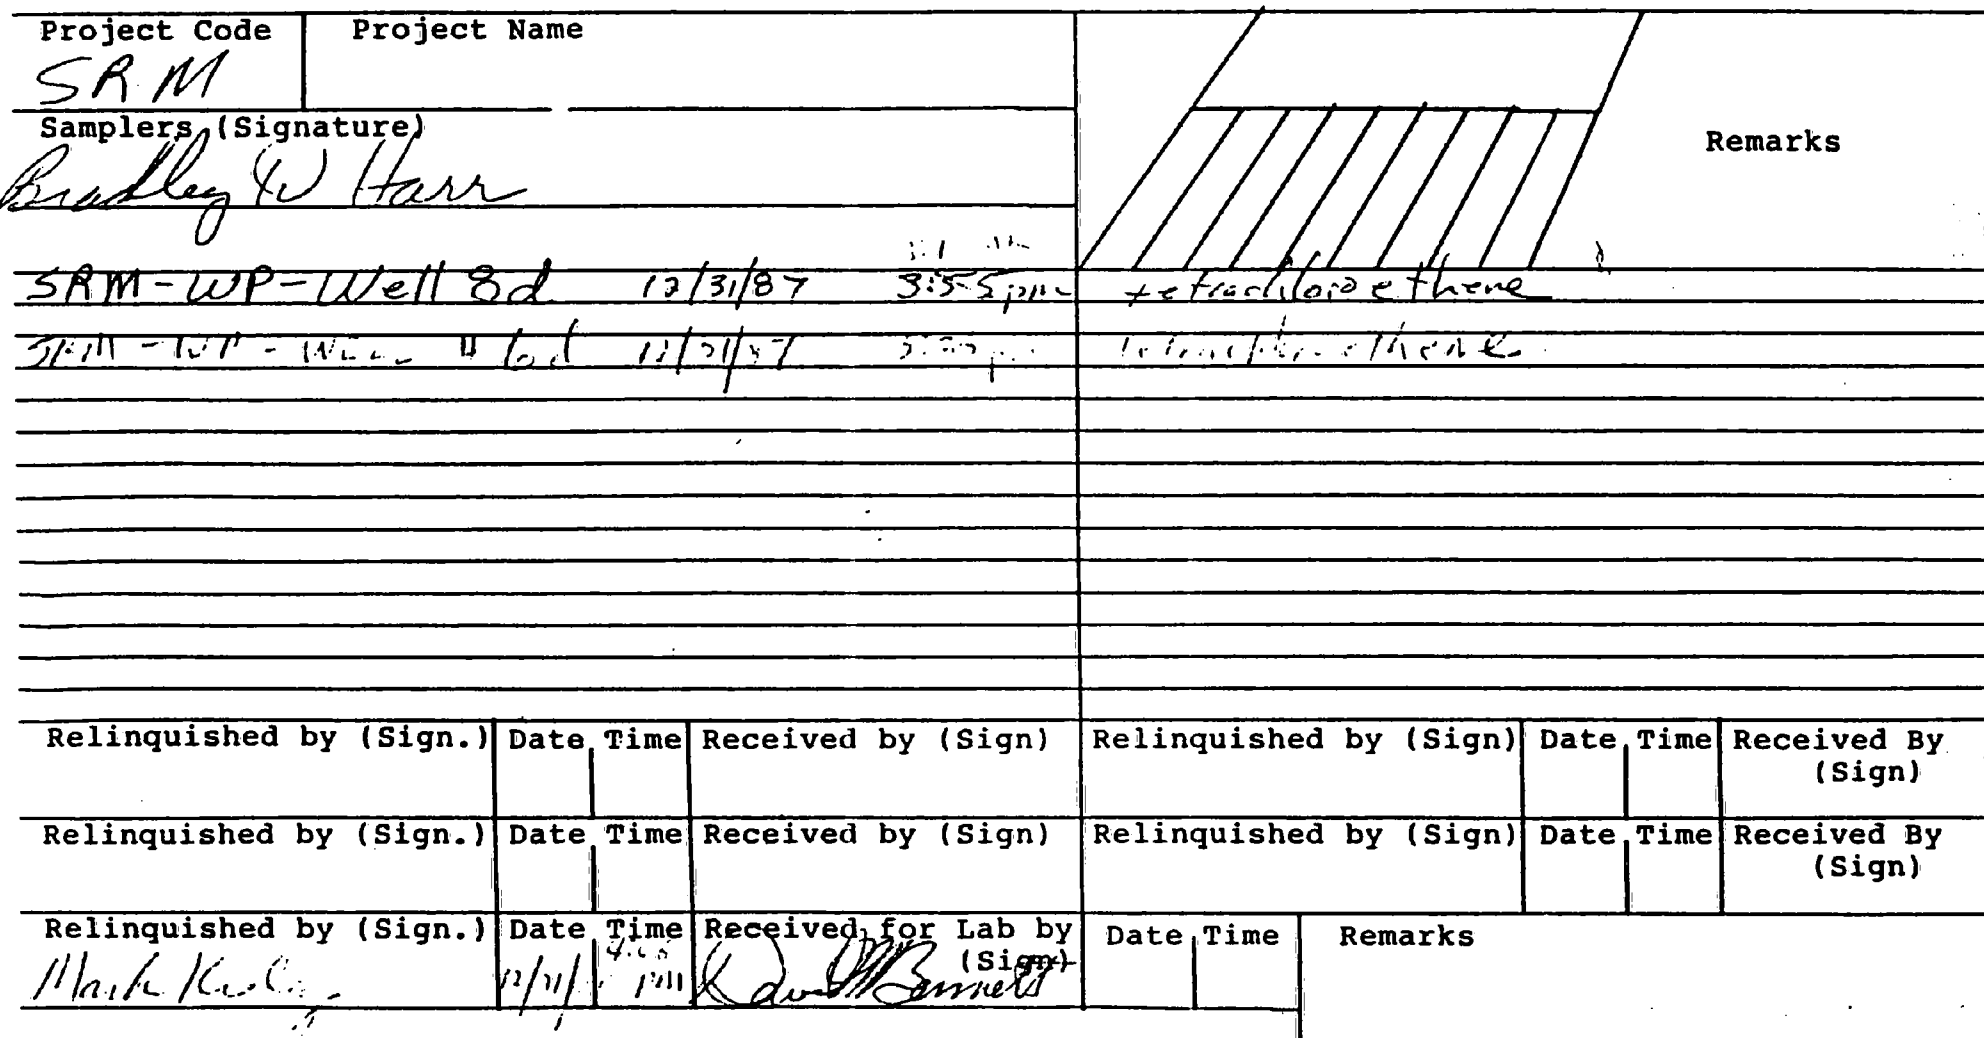 Project Code Project Name
SRM
Samplers (Signature) Remarks
Bradley W Harr
SRM-WP-Well 8d 12/31/87 3:55pm tetrachloroethene
12/31/87
Relinquished by (Sign.) Date Time Received by (Sign) Relinquished by (Sign) Date Time Received By
(Sign)
Relinquished by (Sign.) Date Time Received by (Sign) Relinquished by (Sign) Date Time Received By
(Sign)
Relinquished by (Sign.) Date Time Received for Lab by Date Time Remarks
(Sign)
Mark 12/31/ PM David M Bennett